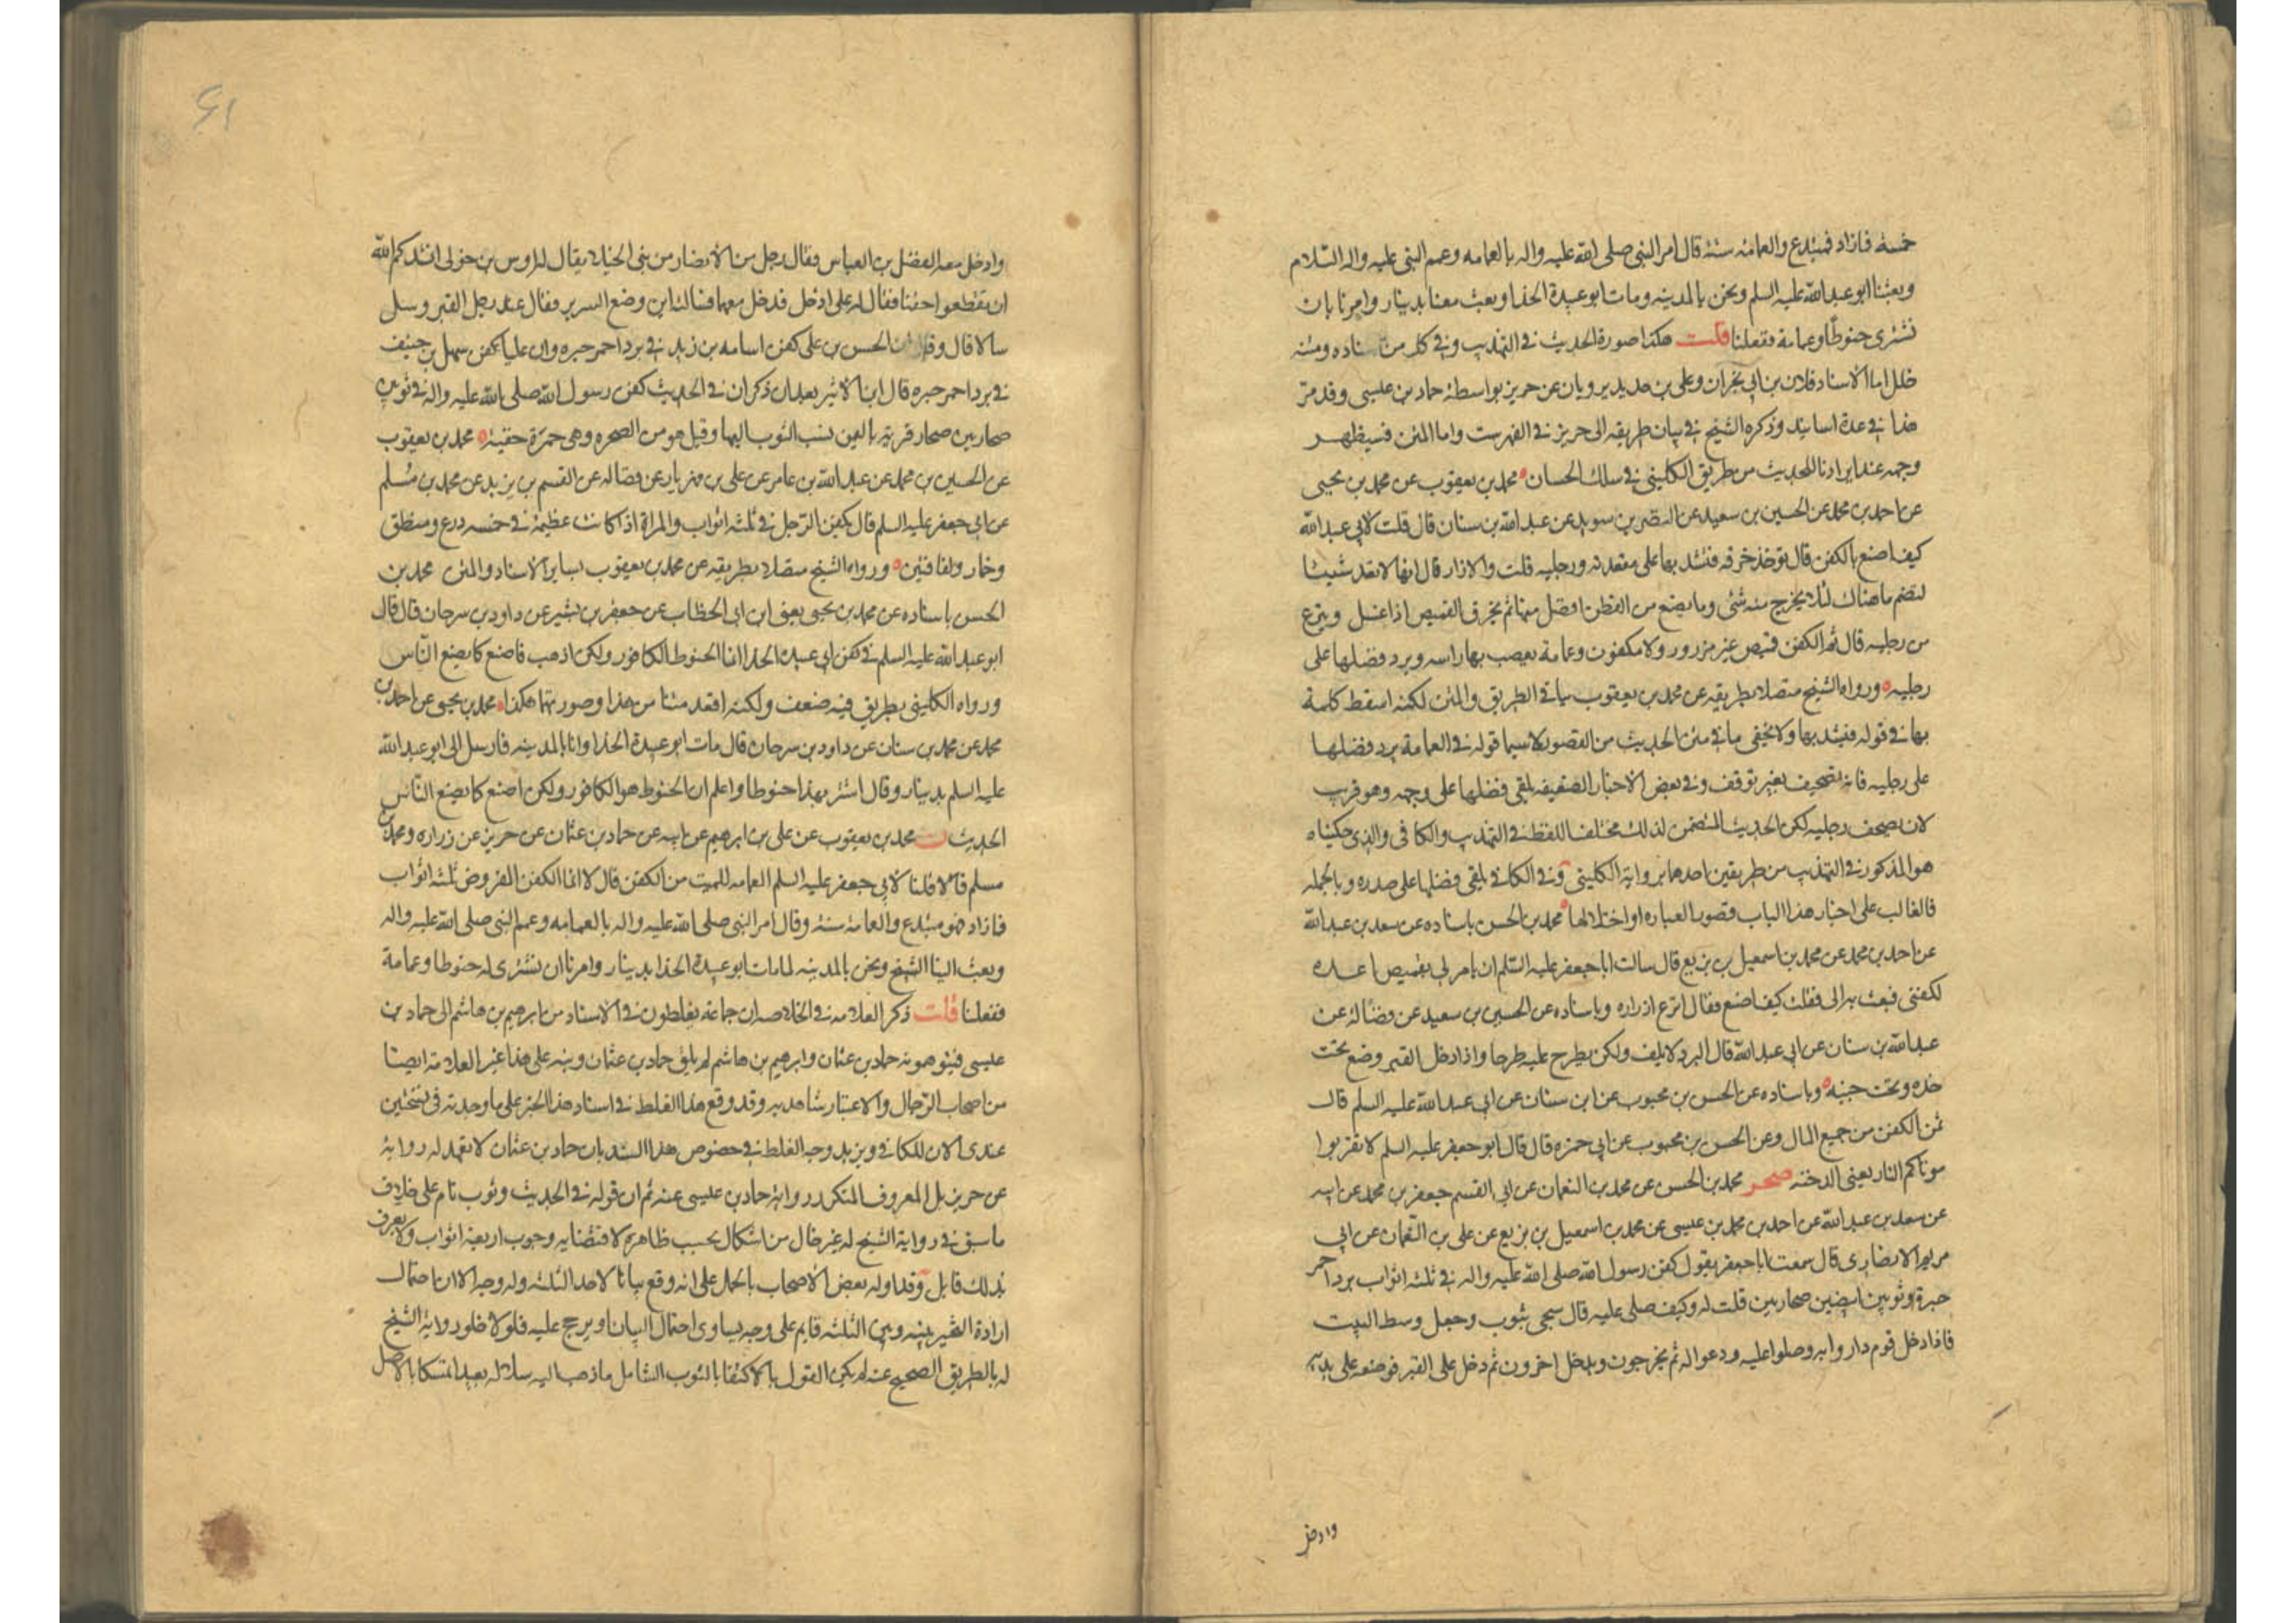 خمسة فما زاد فمبتدع والعمامة سنة قال امر النبي صلى الله عليه واله بالعمامه وعمم النبي عليه واله السلام
وبعثنا ابو عبد الله عليه السلم ونحن بالمدينه ومات ابو عبيدة الحذا وبعث معنا بدينار وامرنا بان
نشترى حنوطا وعمامة ففعلنا قلت هكذا صورة الحديث في التهذيب وفي كل من اسناده ومتنه
خلل اما الاسناد فلان بن ابي نجران وعلى بن حديد يرويان عن حريز بواسطة حماد بن عيسى وقد مر
هذا في عدة اسانيد وذكره الشيخ في بيان طريقه الى حريز في الفهرست واما المتن فسيظهر
وجهه عند ايرادنا للحديث من طريق الكليني في سلك الحسان محمد بن يعقوب عن محمد بن يحيى
عن احمد بن محمد عن الحسين بن سعيد عن النضر بن سويد عن عبد الله بن سنان قال قلت لابي عبد الله
كيف اصنع بالكفن قال تؤخذ خرقه فتشد بها على مقعدته ورجليه قلت والازار قال انها لا تعد شيئا
لتضم ما هناك لئلا يخرج منه شئ وما يصنع من القطن افضل منها ثم يخرق القميص اذا غسل وينزع
من رجليه قال ثم الكفن قميص غير مزرور ولا مكفوف وعمامة يعصب بها راسه ويرد فضلها على
رجليه ورواه الشيخ متصلا بطريقه عن محمد بن يعقوب بباقي الطريق والمتن لكنه اسقط كلمة
بها في قوله فيشد بها ولا يخفى ما في متن الحديث من القصور لا سيما قوله في العمامة يرد فضلها
على رجليه فانه تصحيف بغير توقف وفي بعض الاخبار الضعيفه يلقى فضلها على وجهه وهو قريب
لان يصحف برجليه لكن الحديث المتضمن لذلك مختلف اللفظ في التهذيب والكافي والذى حكيناه
هو المذكور في التهذيب من طريقين احدهما برواية الكليني وفي الكافي يلقى فضلها على صدره وبالجمله
فالغالب على اخبار هذا الباب قصور العباره او اختلالها محمد بن الحسن باسناده عن سعد بن عبد الله
عن احمد بن محمد عن محمد بن اسمعيل بن بزيع قال سالت ابا جعفر عليه السلم ان يامر لي بقميص اعده
لكفني فبعث به الى فقلت كيف اصنع فقال انزع ازراره وباسناده عن الحسين بن سعيد عن فضاله عن
عبد الله بن سنان عن ابي عبد الله قال البرد لا يلف ولكن يطرح عليه طرحا واذا دخل القبر وضع تحت
خده وتحت جنبه وباسناده عن الحسن بن محبوب عن ابن سنان عن ابي عبد الله عليه السلم قال
ثمن الكفن من جميع المال وعن الحسن بن محبوب عن ابي حمزه قال قال ابو جعفر عليه السلم لا تقربوا
موتاكم النار يعنى الدخنه صحر محمد بن الحسن عن محمد بن النعمان عن ابي القسم جعفر بن محمد عن ابيه
عن سعد بن عبد الله عن احمد بن محمد بن عيسى عن محمد بن اسمعيل بن بزيع عن على بن النعمان عن ابي
مريم الانصارى قال سمعت ابا جعفر يقول كفن رسول الله صلى الله عليه واله في ثلثه اثواب برد احمر
حبرة وثوبين ابيضين صحاريين قلت له وكيف صلى عليه قال سجى بثوب وجعل وسط البيت
فاذا دخل قوم داروا به وصلوا عليه ودعوا له ثم يخرجون ويدخل اخرون ثم دخل على القبر فوضعه على يديه
وادخل
٤١
وادخل معه الفضل بن العباس فقال رجل من الانصار من بني الخيلاء يقال له اوس بن خولى انشدكم الله
ان تقطعوا حقنا فقال له على ادخل فدخل معهما فسالته اين وضع السرير فقال عند رجل القبر وسل
سلا قال وقال ان الحسن بن على كفن اسامه بن زيد في برد احمر حبره وان عليا كفن سهل بن حنيف
في برد احمر حبره قال ابن الاثير بعد ان ذكر ان في الحديث كفن رسول الله صلى الله عليه واله في ثوبين
صحاريين صحار قرية باليمن ينسب الثوب اليها وقيل هو من الصحره وهى حمرة خفية محمد بن يعقوب
عن الحسين بن محمد عن عبد الله بن عامر عن على بن مهزيار عن فضاله عن القسم بن يزيد عن محمد بن مسلم
عن ابي جعفر عليه السلم قال يكفن الرجل في ثلثه اثواب والمراة اذا كانت عظيمة في خمسه درع ومنطق
وخمار ولفافتين ورواه الشيخ متصلا بطريقه عن محمد بن يعقوب بساير الاسناد والمتن محمد بن
الحسن باسناده عن محمد بن يحيى يعنى ابن ابي الخطاب عن جعفر بن بشير عن داود بن سرحان قال قال
ابو عبد الله عليه السلم في كفن ابي عبيده الحذا انما الحنوط الكافور ولكن اذهب فاصنع كما يصنع الناس
ورواه الكليني بطريق فيه ضعف ولكنه اقعد متنا من هذا وصورتهما هكذا محمد بن يحيى عن احمد بن
محمد عن محمد بن سنان عن داود بن سرحان قال مات ابو عبيدة الحذا وانا بالمدينه فارسل الى ابو عبد الله
عليه السلم بدينار وقال اشتر بهذا حنوطا واعلم ان الحنوط هو الكافور ولكن اصنع كما يصنع الناس
الحديث ن محمد بن يعقوب عن على بن ابرهيم عن ابيه عن حماد بن عثمان عن حريز عن زراره ومحمد بن
مسلم قالا قلنا لابي جعفر عليه السلم العمامه للميت من الكفن قال لا انما الكفن المفروض ثلثه اثواب
فما زاد فهو مبتدع والعمامة سنة وقال امر النبي صلى الله عليه واله بالعمامه وعمم النبي صلى الله عليه واله
وبعث الينا الشيخ ونحن بالمدينه لما مات ابو عبيدة الحذا بدينار وامرنا ان نشترى له حنوطا وعمامة
ففعلنا قلت ذكر العلامه في الخلاصه ان جماعة يغلطون في الاسناد من ابرهيم بن هاشم الى حماد بن
عيسى فيتوهمونه حماد بن عثمان وابرهيم بن هاشم لم يلق حماد بن عثمان ونبه على هذا غير العلامة ايضا
من اصحاب الرجال والاعتبار شاهد به وقد وقع هذا الغلط في اسناد هذا الخبر على ما وجدته في نسختين
عندى الان للكافي ويزيد وجه الغلط في خصوص هذا السند بان حماد بن عثمان لا تعهد له رواية
عن حريز بل المعروف المتكرر رواية حماد بن عيسى عنه ثم ان قوله في الحديث وثوب تام على خلاف
ما سبق في رواية الشيخ له غير خال من اشكال بحسب ظاهره لاقتضايه وجوب اربعة اثواب ولا يعرف
بذلك قايل وقد اوله بعض الاصحاب بالحمل على انه وقع بيانا لاحد الثلثه وله وجه الا ان احتمال
ارادة التخيير بينه وبين الثلثه قايم على وجه يساوى احتمال البيان او يرجح عليه فلولا خلو رواية الشيخ
له بالطريق الصحيح عنه لم يكن القول بالاكتفا بالثوب الشامل ما ذهب اليه سلار له بعيدا تمسكا بالاصل